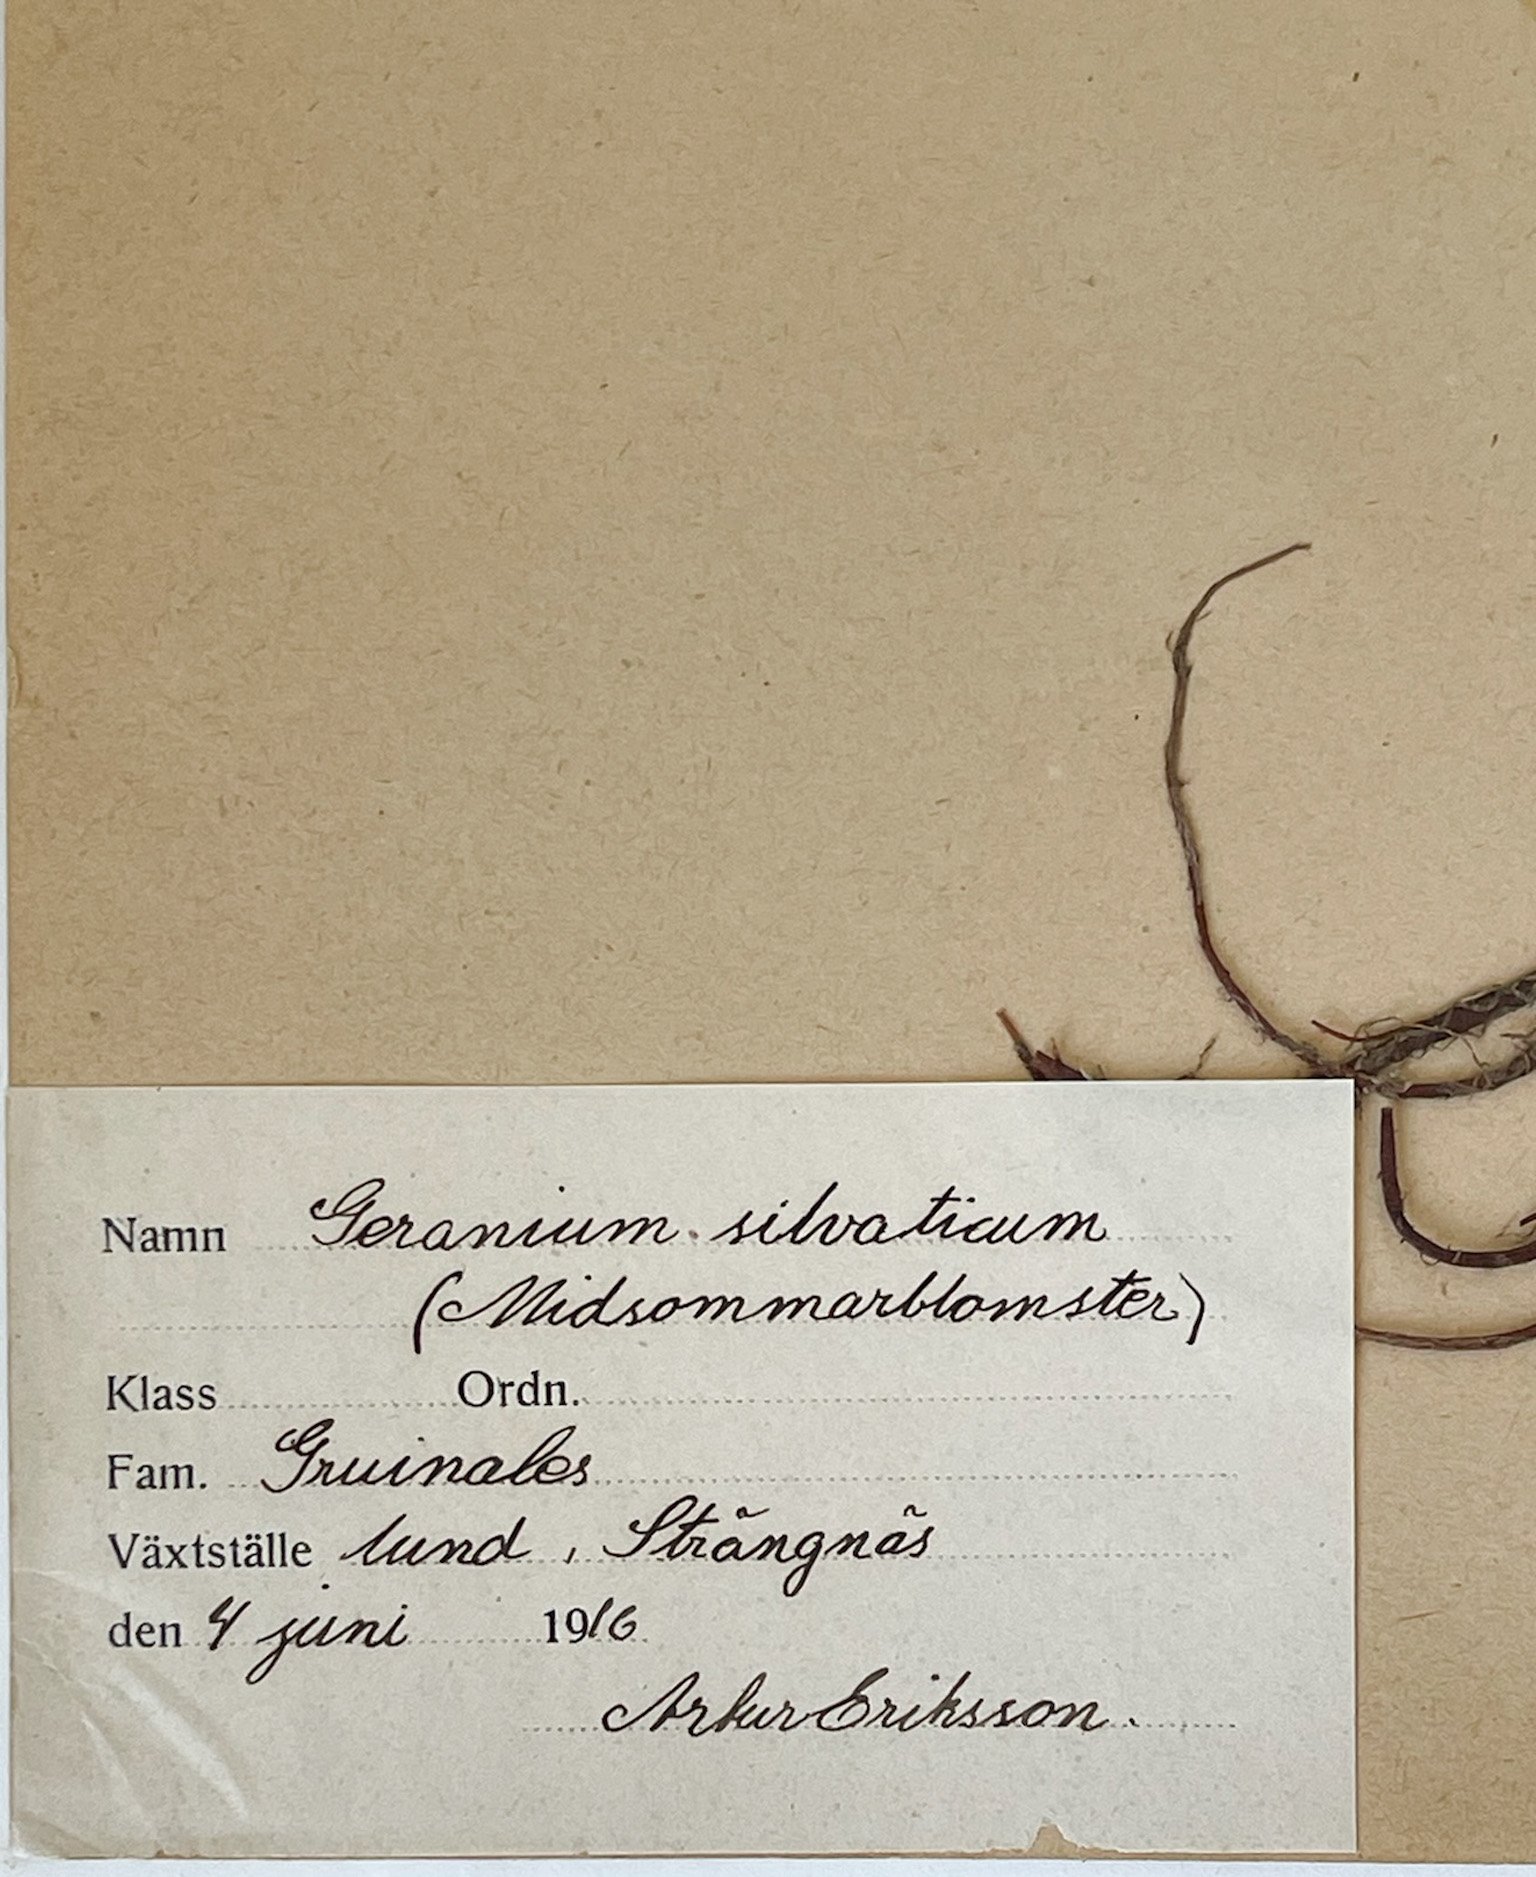 Namn Geranium silvaticum
(Midsommarblomster)
Klass Ordn.
Fam. Gruinales
Växtställe lund, Strängnäs
den 4 juni 1916
Artur Eriksson.